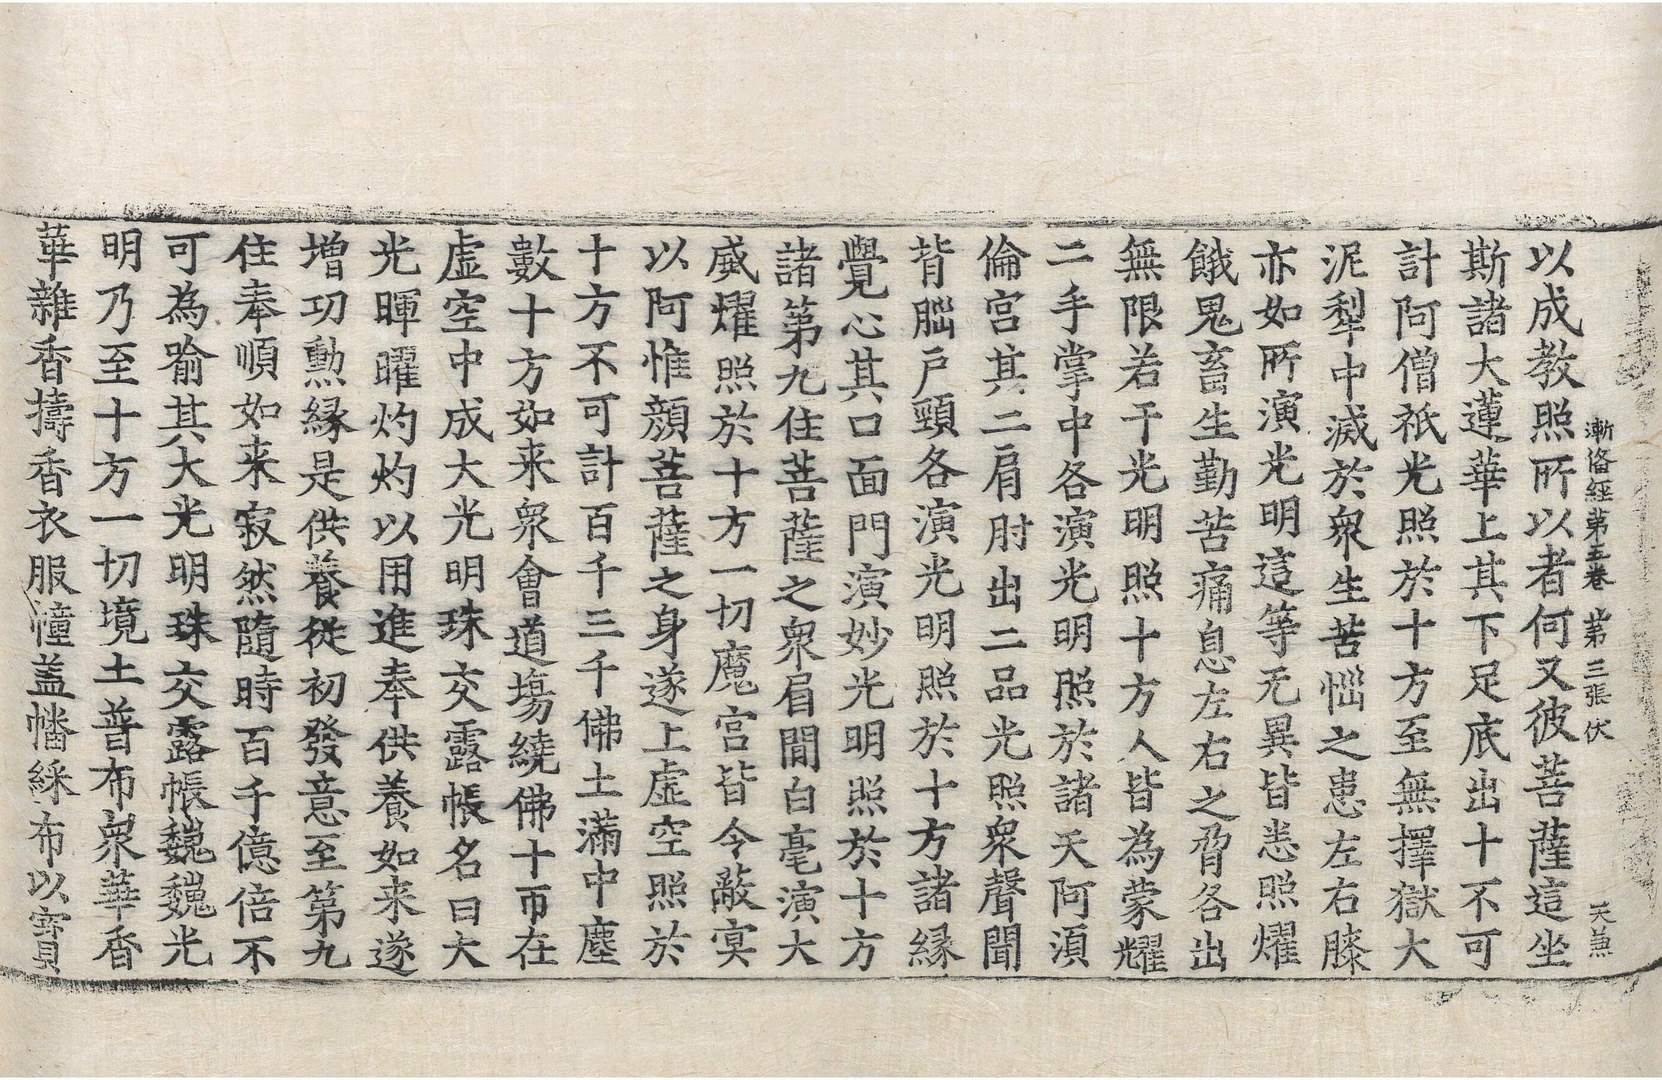 漸俻経第五卷 第三張 伏 天兼
以成教照所以者何又彼菩薩這坐
斯諸大蓮華上其下足底出十不可
計阿僧祇光照於十方至無擇獄大
泥犁中滅於衆生苦惱之患左右膝
亦如所演光明這等无異皆悉照燿
餓鬼畜生勤苦痛息左右之脅各出
無限若干光明照十方人皆為蒙耀
二手掌中各演光明照於諸天阿須
倫宮其二肩肘出二品光照衆聲聞
背腦戶頸各演光明照於十方諸縁
覺心其口面門演妙光明照於十方
諸第九住菩薩之衆眉間白毫演大
威燿照於十方一切魔宮皆令蔽冥
以阿惟顔菩薩之身遂上虛空照於
十方不可計百千三千佛土滿中塵
數十方如来衆會道塲繞佛十帀在
虛空中成大光明珠交露帳名曰大
光暉曜灼灼以用進奉供養如来遂
增功勲縁是供養從初發意至第九
住奉順如来寂然隨時百千億倍不
可為喻其大光明珠交露帳巍巍光
明乃至十方一切境土普布衆華香
華雜香擣香衣服幢盖幡綵布以寳